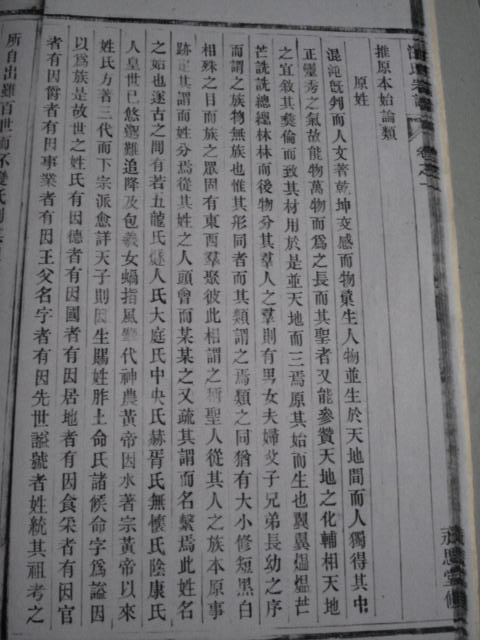 卷之一
永思堂修
推原本始論類
原姓
混沌旣判而人文著乾坤交感而物彙生人物並生於天地間而人獨得其中
正靈秀之氣故能物萬物而爲之長而其聖者又能參贊天地之化輔相天地
之宜敘其彝倫而致其材用於是並天地而三焉原其始而生也翼翼熅熅芒
芒詵詵總總林林而後物分其羣人之羣則有男女夫婦父子兄弟長幼之序
而謂之族物無族也惟其形同者而其類謂之焉類之同猶有大小修短黑白
相殊之目而族之眾固有東西羣聚彼此相謂之稱聖人從其人之族本原事
跡定其謂而姓分焉從其姓之人頭會而某某之又疏其謂而名繫焉此姓名
之始也遂古之間有若五龍氏燧人氏大庭氏中央氏赫胥氏無懷氏陰康氏
人皇世已悠邈難追降及包羲女媧指風肇代神農黃帝因水著宗黃帝以來
姓氏方著三代而下宗派愈詳天子則因生賜姓胙土命氏諸侯命字爲謚因
以爲族是故世之姓氏有因德者有因國者有因居地者有因食采者有因官
者有因爵者有因事業者有因王父名字者有因先世謚號者姓統其祖考之
所自出雖百世而不變氏則